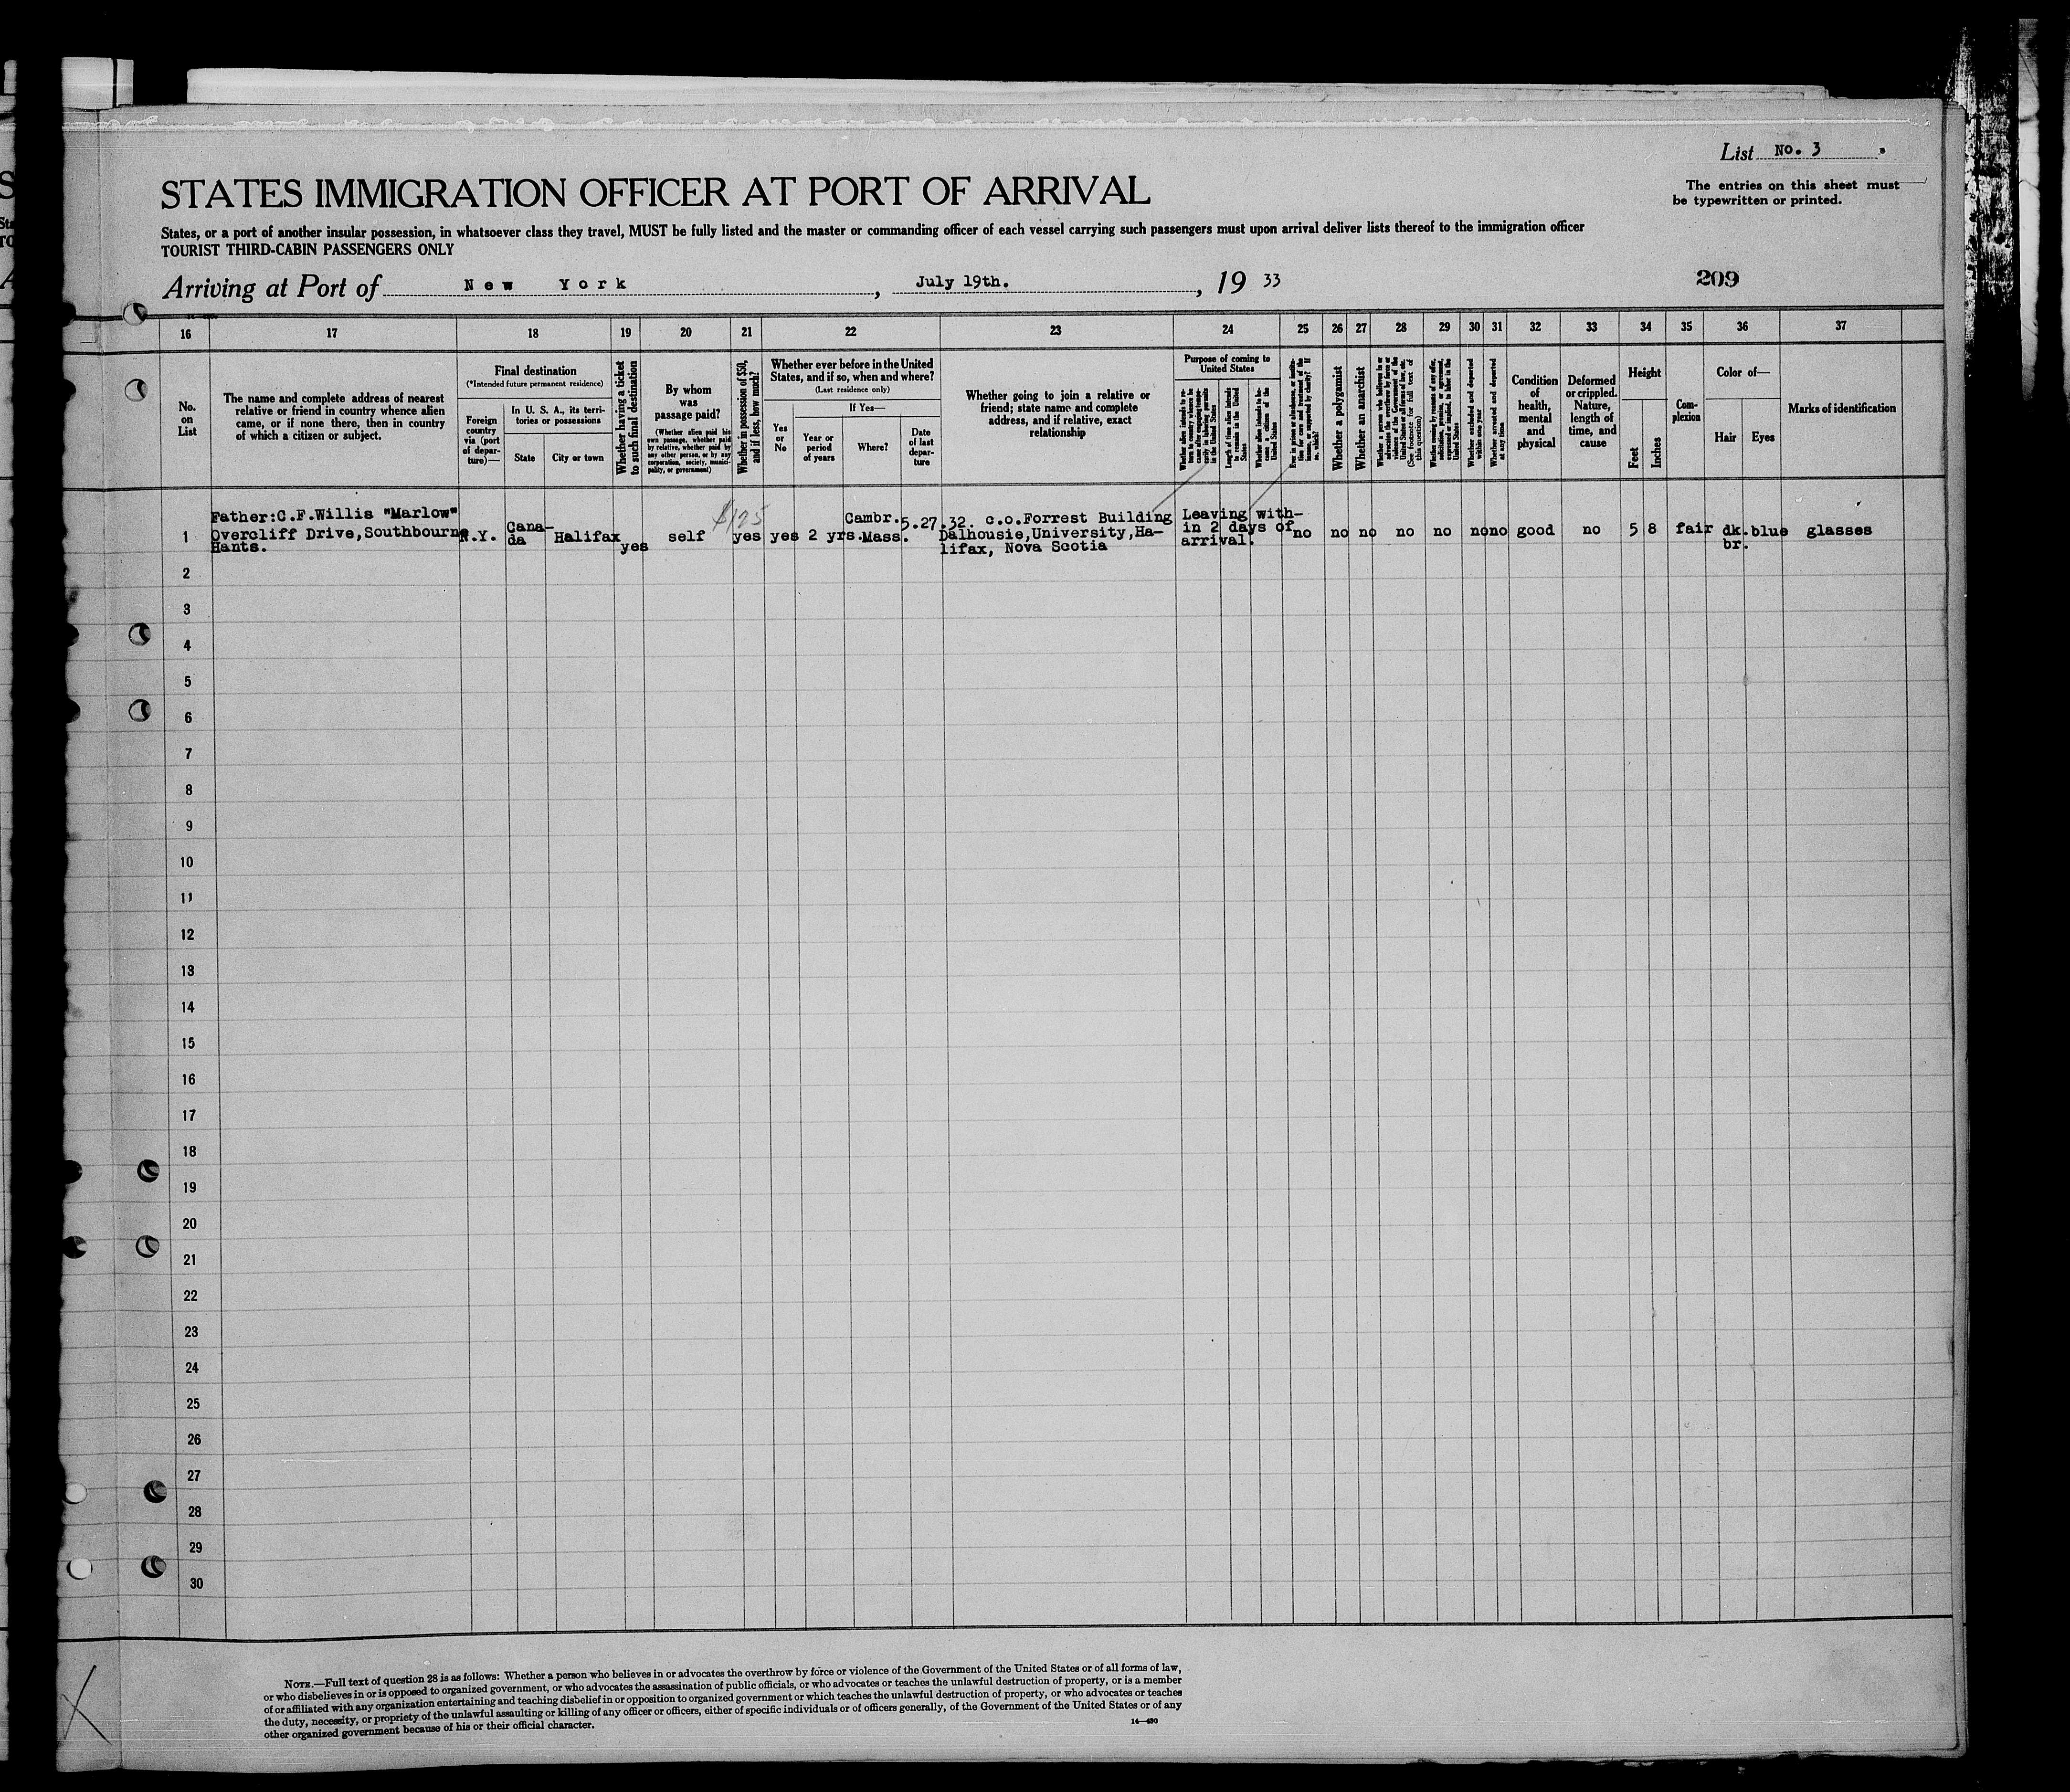 List No. 3
The entries on this sheet must
be typewritten or printed.
STATES IMMIGRATION OFFICER AT PORT OF ARRIVAL
States, or a port of another insular possession, in whatsoever class they travel, MUST be fully listed and the master or commanding officer of each vessel carrying such passengers must upon arrival deliver lists thereof to the immigration officer
TOURIST THIRD-CABIN PASSENGERS ONLY
Arriving at Port of New York, July 19th., 19 33
209
16 17 18 19 20 21 22 23 24 25 26 27 28 29 30 31 32 33 34 35 36 37
No.
on
List
The name and complete address of nearest
relative or friend in country whence alien
came, or if none there, then in country
of which a citizen or subject.
Final destination
(*Intended future permanent residence)
Foreign
country
via (port
of depar-
ture)—
In U. S. A., its terri-
tories or possessions
State
City or town
Whether having a ticket
to such final destination
By whom
was
passage paid?
(Whether alien paid his
own passage, whether paid
by relative, whether paid by
any other person, or by any
corporation, society, munici-
pality, or government)
Whether in possession of $50,
and if less, how much?
Whether ever before in the United
States, and if so, when and where?
(Last residence only)
Yes
or
No
If Yes—
Year or
period
of years
Where?
Date
of last
depar-
ture
Whether going to join a relative or
friend; state name and complete
address, and if relative, exact
relationship
Purpose of coming to
United States
Whether alien intends to re-
turn to country whence he
came after engaging tempo-
rarily in laboring pursuits
in the United States
Length of time alien intends
to remain in the United
States
Whether alien intends to be-
come a citizen of the
United States
Ever in prison or almshouse, or institu-
tion for care and treatment of the
insane, or supported by charity? If
so, which?
Whether a polygamist
Whether an anarchist
Whether a person who believes in or
advocates the overthrow by force or
violence of the Government of the
United States or all forms of law, etc.
(See footnote for full text of
this question)
Whether coming by reason of any offer,
solicitation, promise, or agreement,
expressed or implied, to labor in the
United States
Whether excluded and deported
within one year
Whether arrested and deported
at any time
Condition
of
health,
mental
and
physical
Deformed
or crippled.
Nature,
length of
time, and
cause
Height
Feet
Inches
Com-
plexion
Color of—
Hair
Eyes
Marks of identification
1
Father:C.F.Willis "Marlow"
Overcliff Drive,Southbourne
Hants.
N.Y.
Cana-
da
Halifax
yes
self
$125
yes
yes
2 yrs.
Cambr.
Mass.
5.27.32.
c.o.Forrest Building
Dalhousie,University,Ha-
lifax, Nova Scotia
Leaving with-
in 2 days of
arrival.
no no no no no no no good no 5 8 fair dk.
br.
blue glasses
2
3
4
5
6
7
8
9
10
11
12
13
14
15
16
17
18
19
20
21
22
23
24
25
26
27
28
29
30
NOTE.—Full text of question 28 is as follows: Whether a person who believes in or advocates the overthrow by force or violence of the Government of the United States or of all forms of law,
or who disbelieves in or is opposed to organized government, or who advocates the assassination of public officials, or who advocates or teaches the unlawful destruction of property, or is a member
of or affiliated with any organization entertaining and teaching disbelief in or opposition to organized government or which teaches the unlawful destruction of property, or who advocates or teaches
the duty, necessity, or propriety of the unlawful assaulting or killing of any officer or officers, either of specific individuals or of officers generally, of the Government of the United States or of any
other organized government because of his or their official character.
14—430